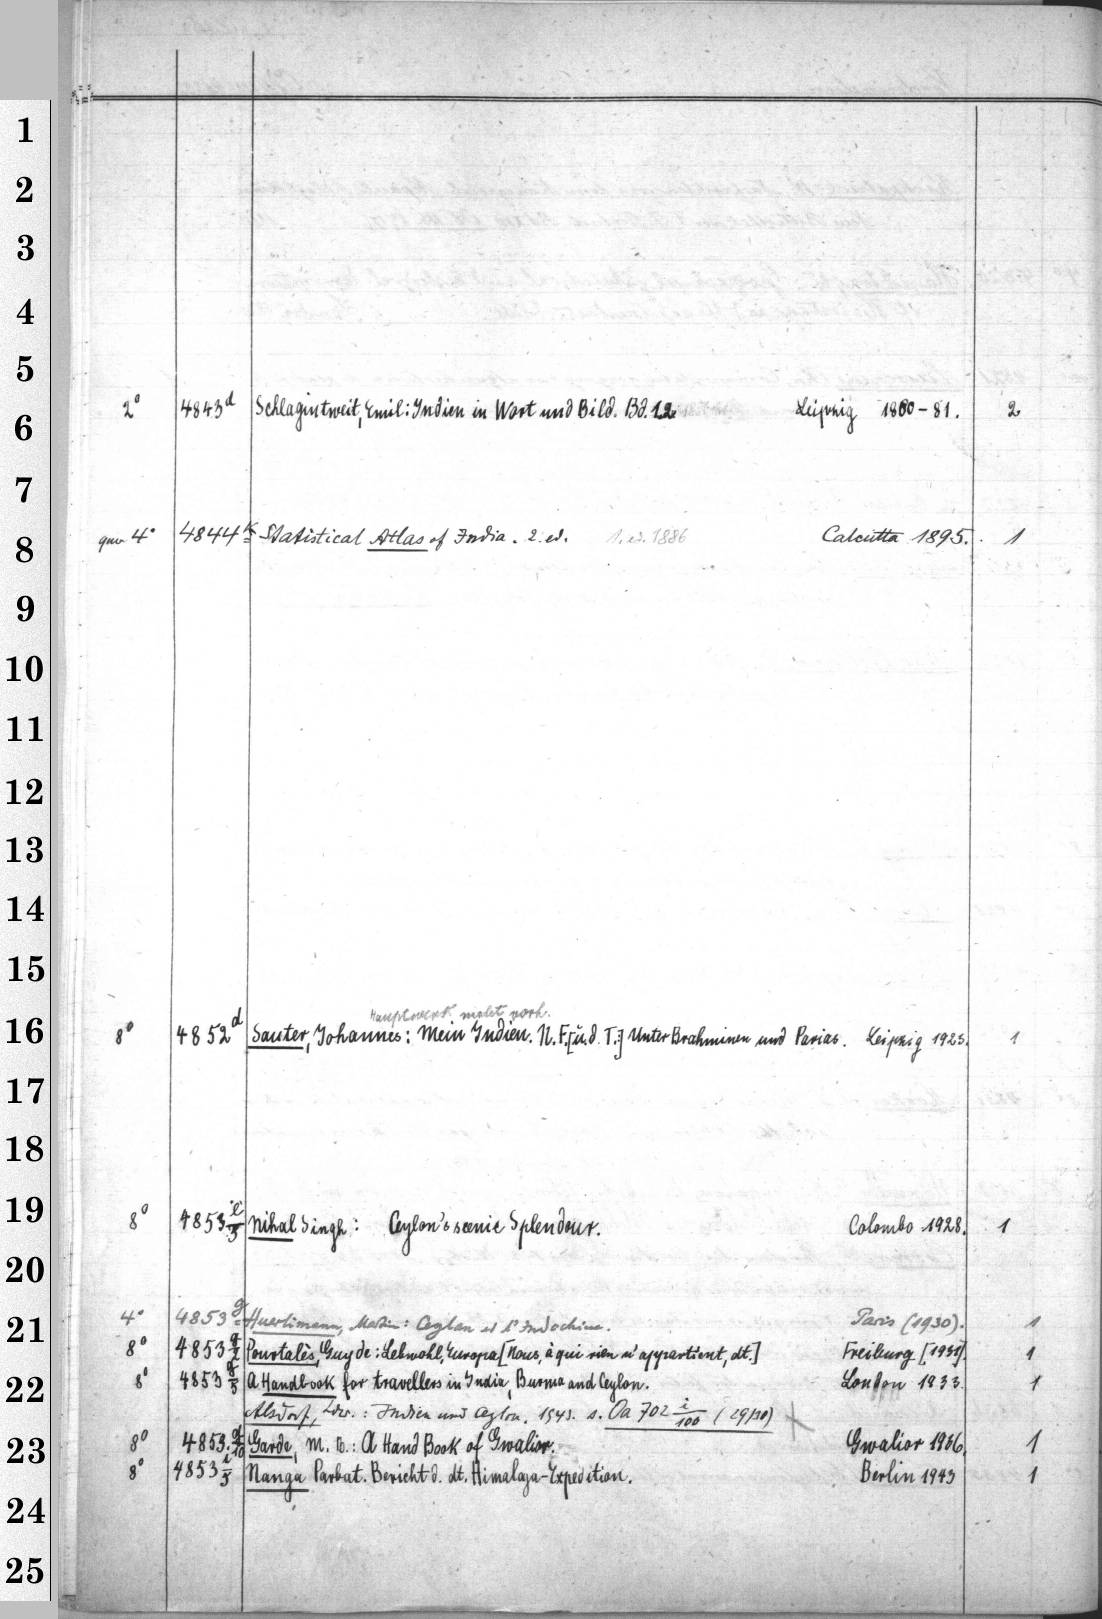 1
2
3
4
5
6
2° 4843d Schlagintweit, Emil: Indien in Wort und Bild. Bd. 1.2 Leipzig 1880-81. 2
7
8
quer 4° 4844k Statistical Atlas of India. 2. ed. 1. ed. 1886 Calcutta 1895. 1
9
10
11
12
13
14
15
Hauptwerk nicht vorh.
16
8° 4852d Sauter, Johannes: Mein Indien. N. F. [u. d. T.:] Unter Brahminen und Parias. Leipzig 1923. 1
17
18
19
8° 4853 Nihal Singh: Ceylon's scenic Splendour. Colombo 1928. 1
20
21
4° 4853g Huerlimann, Martin: Ceylan et l'Indochine. Paris (1930). 1
8° 4853 Pourtalès, Guy de: Lebwohl, Europa [Nous, à qui rien n'appartient, dt.] Freiburg [1932] 1
22
8° 4853 A Handbook for travellers in India, Burma and Ceylon. London 1933 1
Alsdorf, Ldw.: Indien und Ceylon. 1943. s. Oa 702 i/100 (29/30)
23
8° 4853 Garde, M. B.: A Hand Book of Gwalior. Gwalior 1936. 1
8° 4853 i/5 Nanga Parbat. Bericht d. dt. Himalaja-Expedition. Berlin 1943 1
24
25